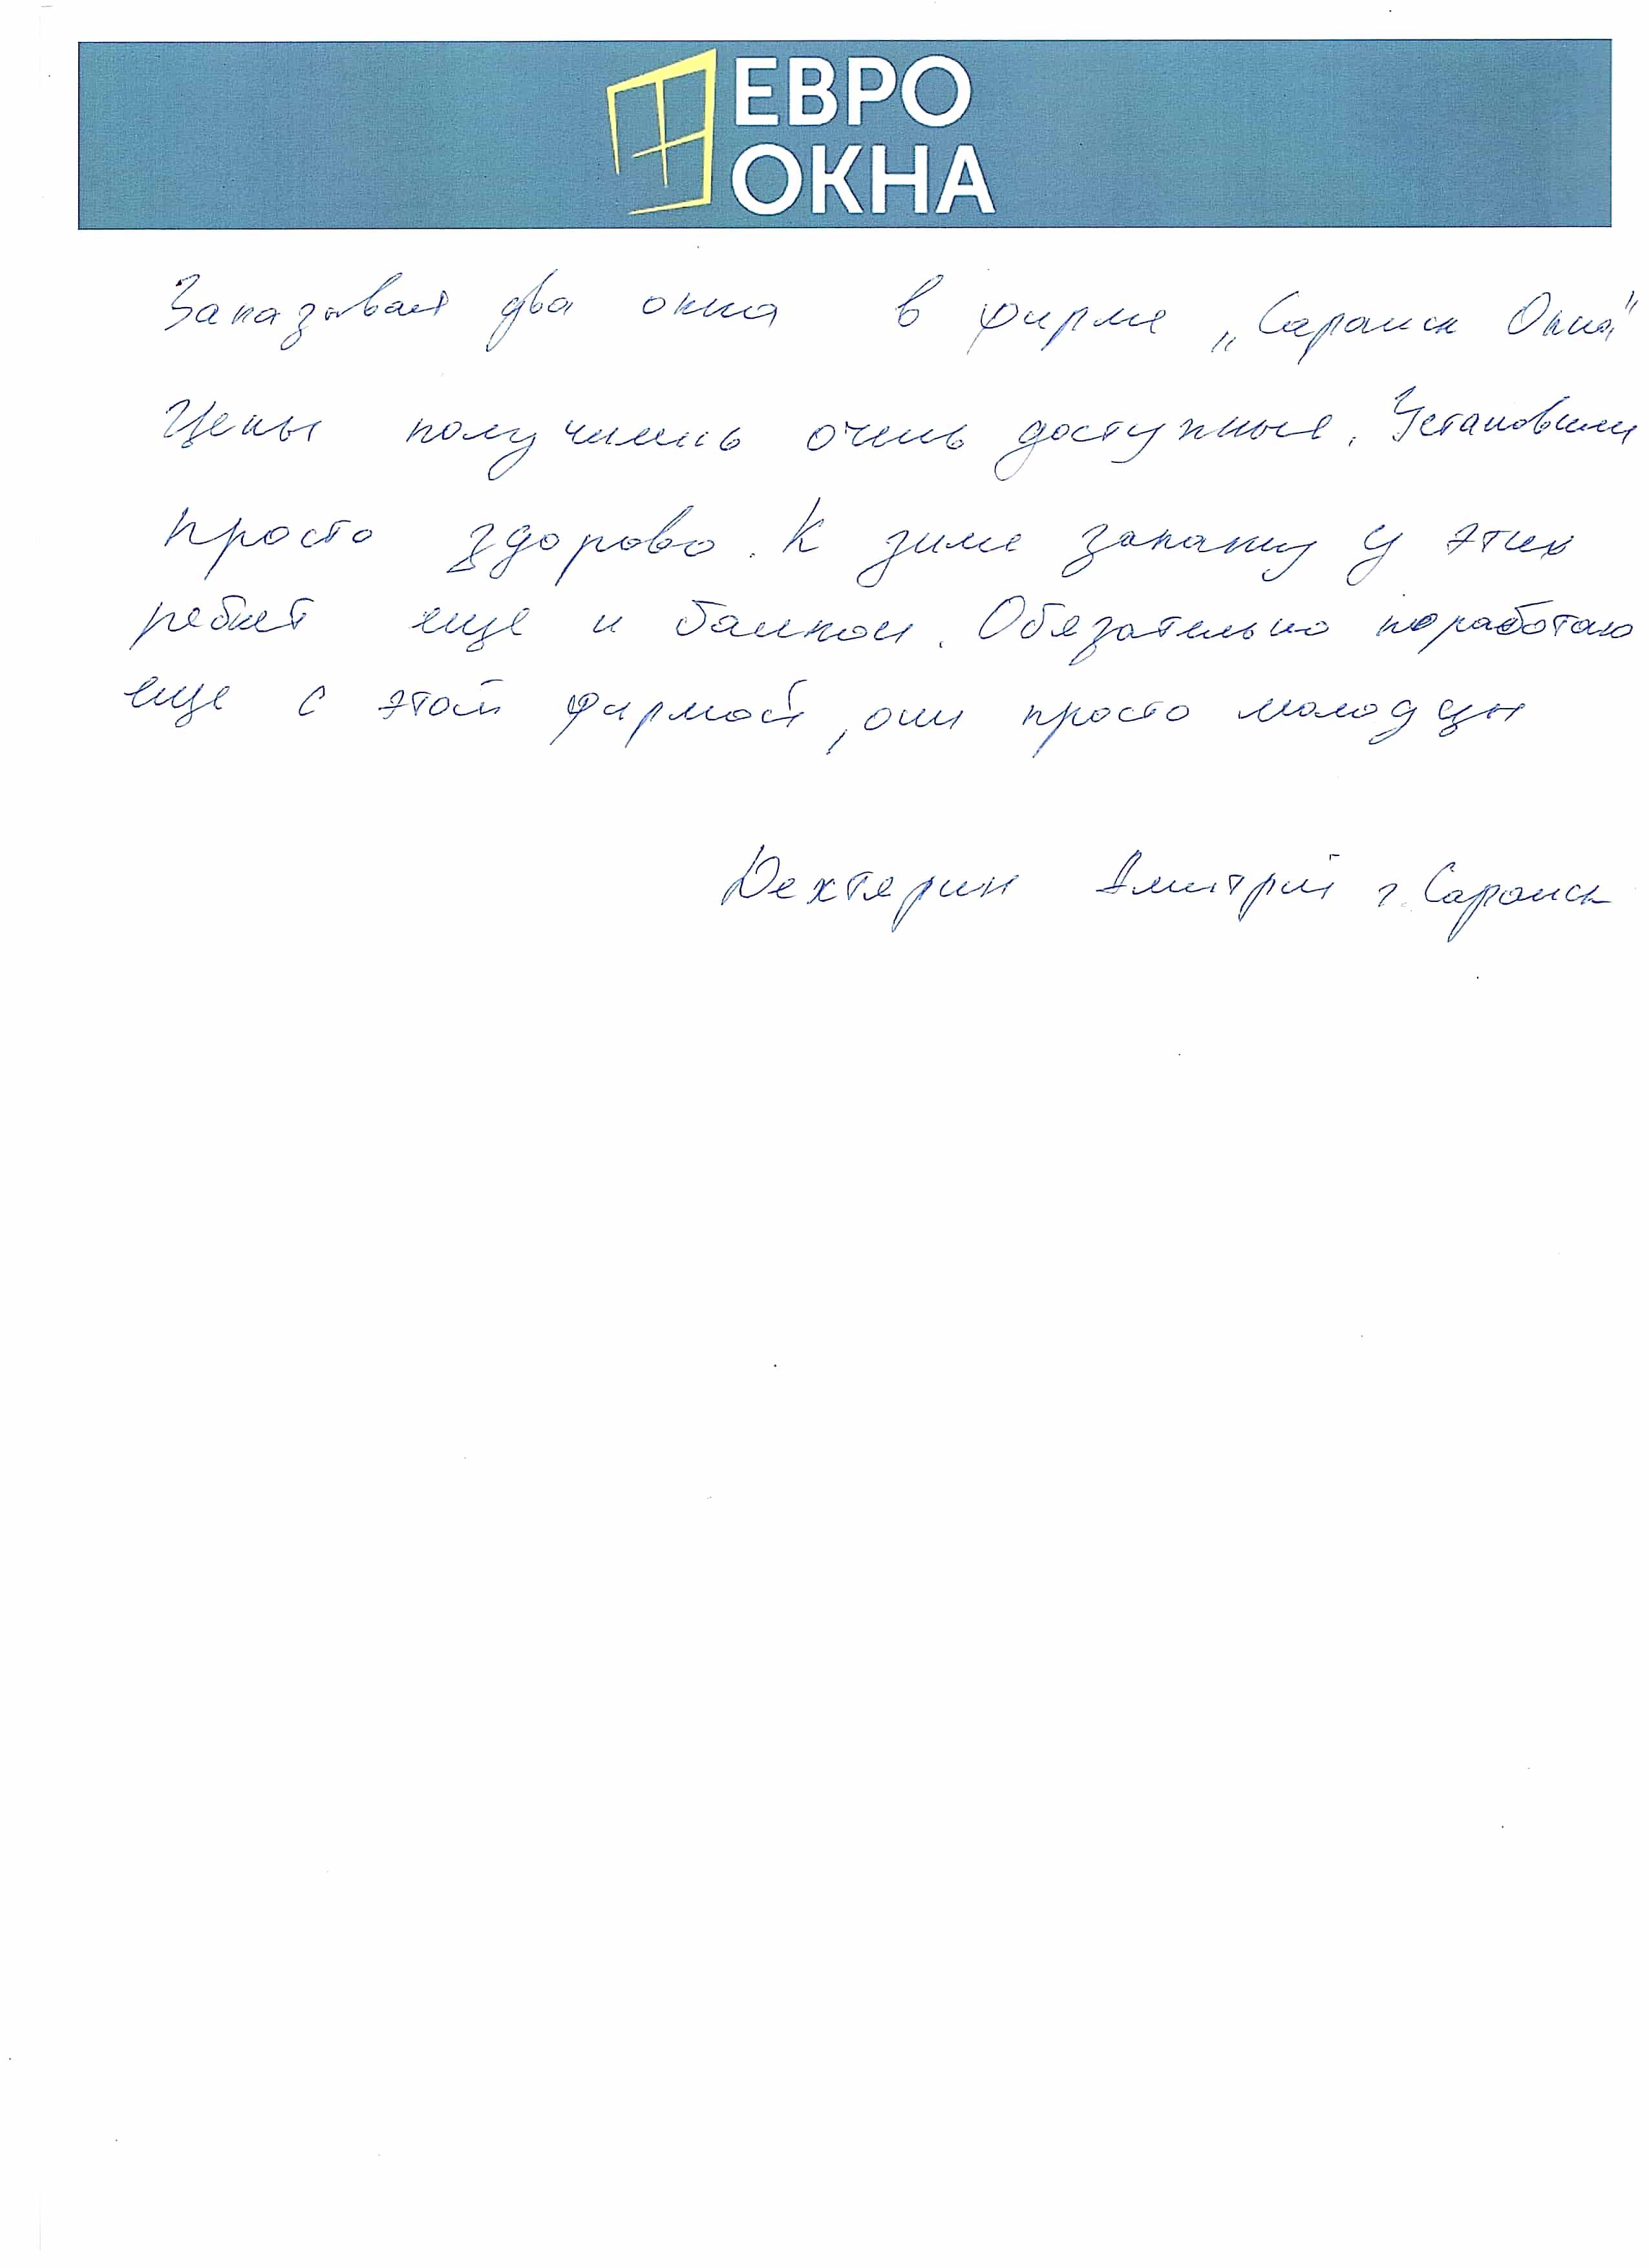 ЕВРО
ОКНА
Заказывал два окна в фирме „Саранск Окна"
Цены получились очень доступные. Установили
просто здорово. К зиме закажу у этих
ребят еще и балкон. Обязательно поработаю
еще с этой фирмой, они просто молодцы
Дехтярин Дмитрий г. Саранск